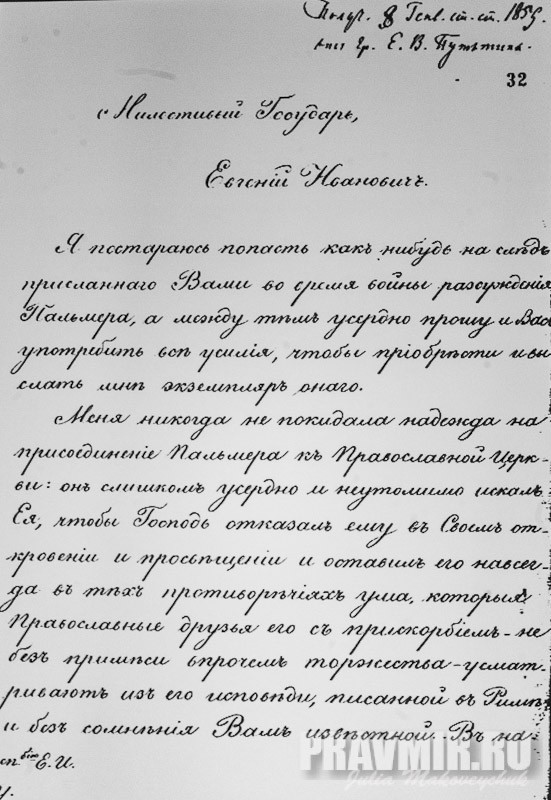 Получ. 8 Генв. ст. ст. 1859.
гр. Е. В. Путятинъ.
32
Милостивый Государь,
Евгеній Ивановичъ.
Я постараюсь попасть какъ нибудь на слѣдъ
присланнаго Вами во время войны разсужденія
Пальмера, а между тѣмъ усердно прошу и Вас
употребить всѣ усилія, чтобы пріобрѣсти и вы
слать мнѣ экземпляръ онаго.
Меня никогда не покидала надежда на
присоединеніе Пальмера къ Православной Церк-
ви: онъ слишкомъ усердно и неутомимо искалъ
Ея, чтобы Господь отказалъ ему въ Своемъ от-
кровеніи и просвѣщеніи и оставилъ его навсег-
да въ тѣхъ противорѣчіяхъ ума, которыя
Православные друзья его съ прискорбіемъ - не
безъ примѣси впрочемъ торжества - усмат-
риваютъ изъ его исповѣди, писанной въ Римѣ
и безъ сомнѣнія Вамъ извѣстной. Въ на
Е. И.
PRAVMIR.RU
Julia Makoveychuk